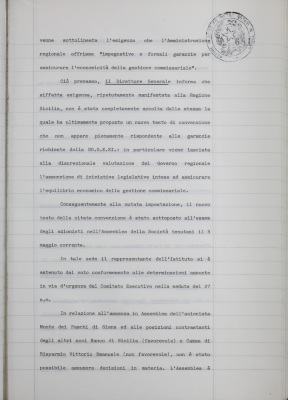 venne sottolineata l'esigenza che l'Amministrazione
regionale offrisse "impegnative e formali garanzie per
assicurare l'economicità della gestione commissariale".
Ciò premesso, il Direttore Generale informa che
siffatta esigenza, ripetutamente manifestata alla Regione
Sicilia, non è stata completamente accolta dalla stessa la
quale ha ultimamente proposto un nuovo testo di convenzione
che non appare pienamente rispondente alle garanzie
richieste in particolare viene lasciata
alla discrezionale valutazione del Governo regionale
l'assunzione di iniziative legislative intese ad assicurare
l'equilibrio economico della gestione commissariale.
Conseguentemente alla mutata impostazione, il nuovo
testo della citata convenzione è stato sottoposto all'esame
degli azionisti nell'Assemblea della Società tenutasi il 8
maggio corrente.
In tale sede il rappresentante dell'Istituto si è
astenuto dal voto conformemente alle determinazioni assunte
in via d'urgenza dal Comitato Esecutivo nella seduta del 27
In relazione all'assenza in Assemblea dell'azionista
Monte dei Paschi di Siena ed alle posizioni contrastanti
degli altri soci Banco di Sicilia (favorevole) e Cassa di
Risparmio Vittorio Emanuele (non favorevole), non è stato
possibile assumere decisioni in materia. L'Assemblea è